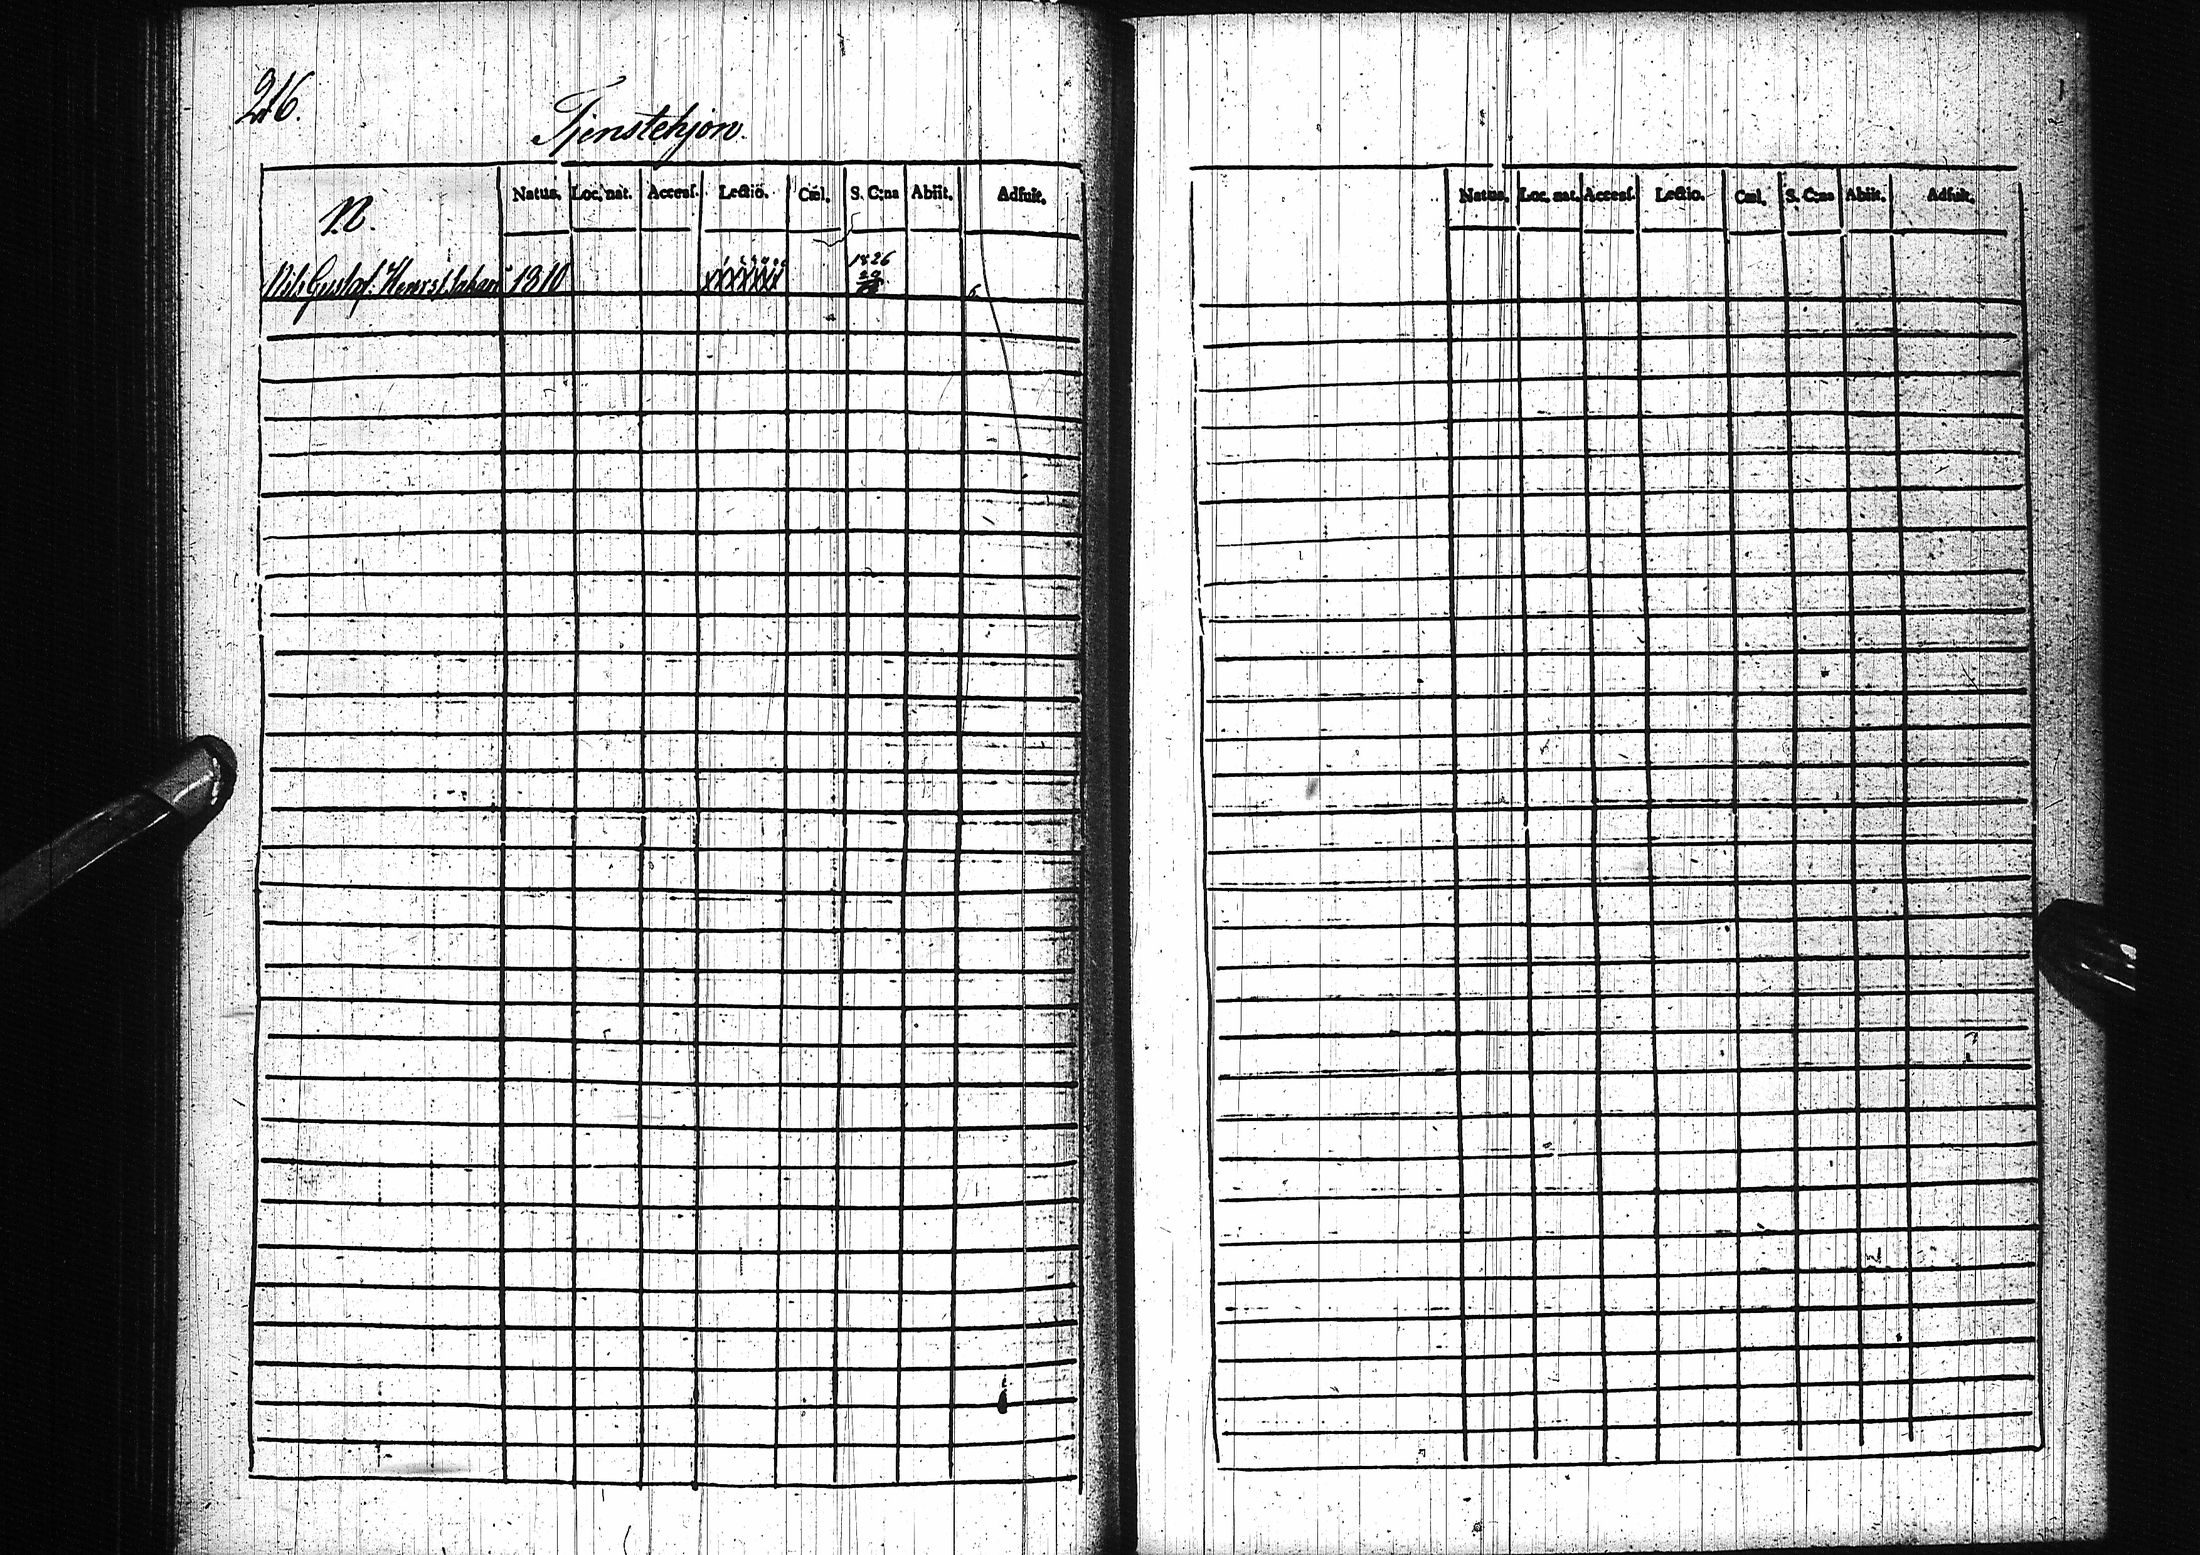 216.
Tjenstehjon.
N.
Natus. Loc. nat. Accesſ. Lectio. Cæl. S. C:na Abiit. Adfuit.
Gustaf 1810 1826
Natus. Loc. nat. Accesſ. Lectio. Cæl. S. C:na Abiit. Adfuit.